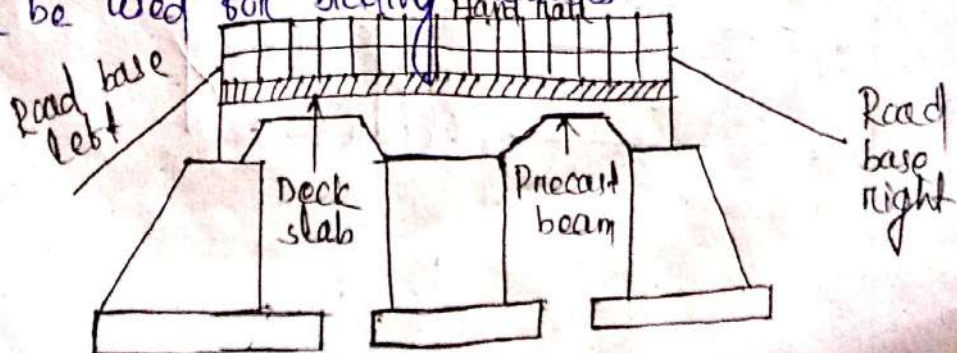 be used for
Hand rail
Road base
left
Deck
slab
Precast
beam
Road
base
right